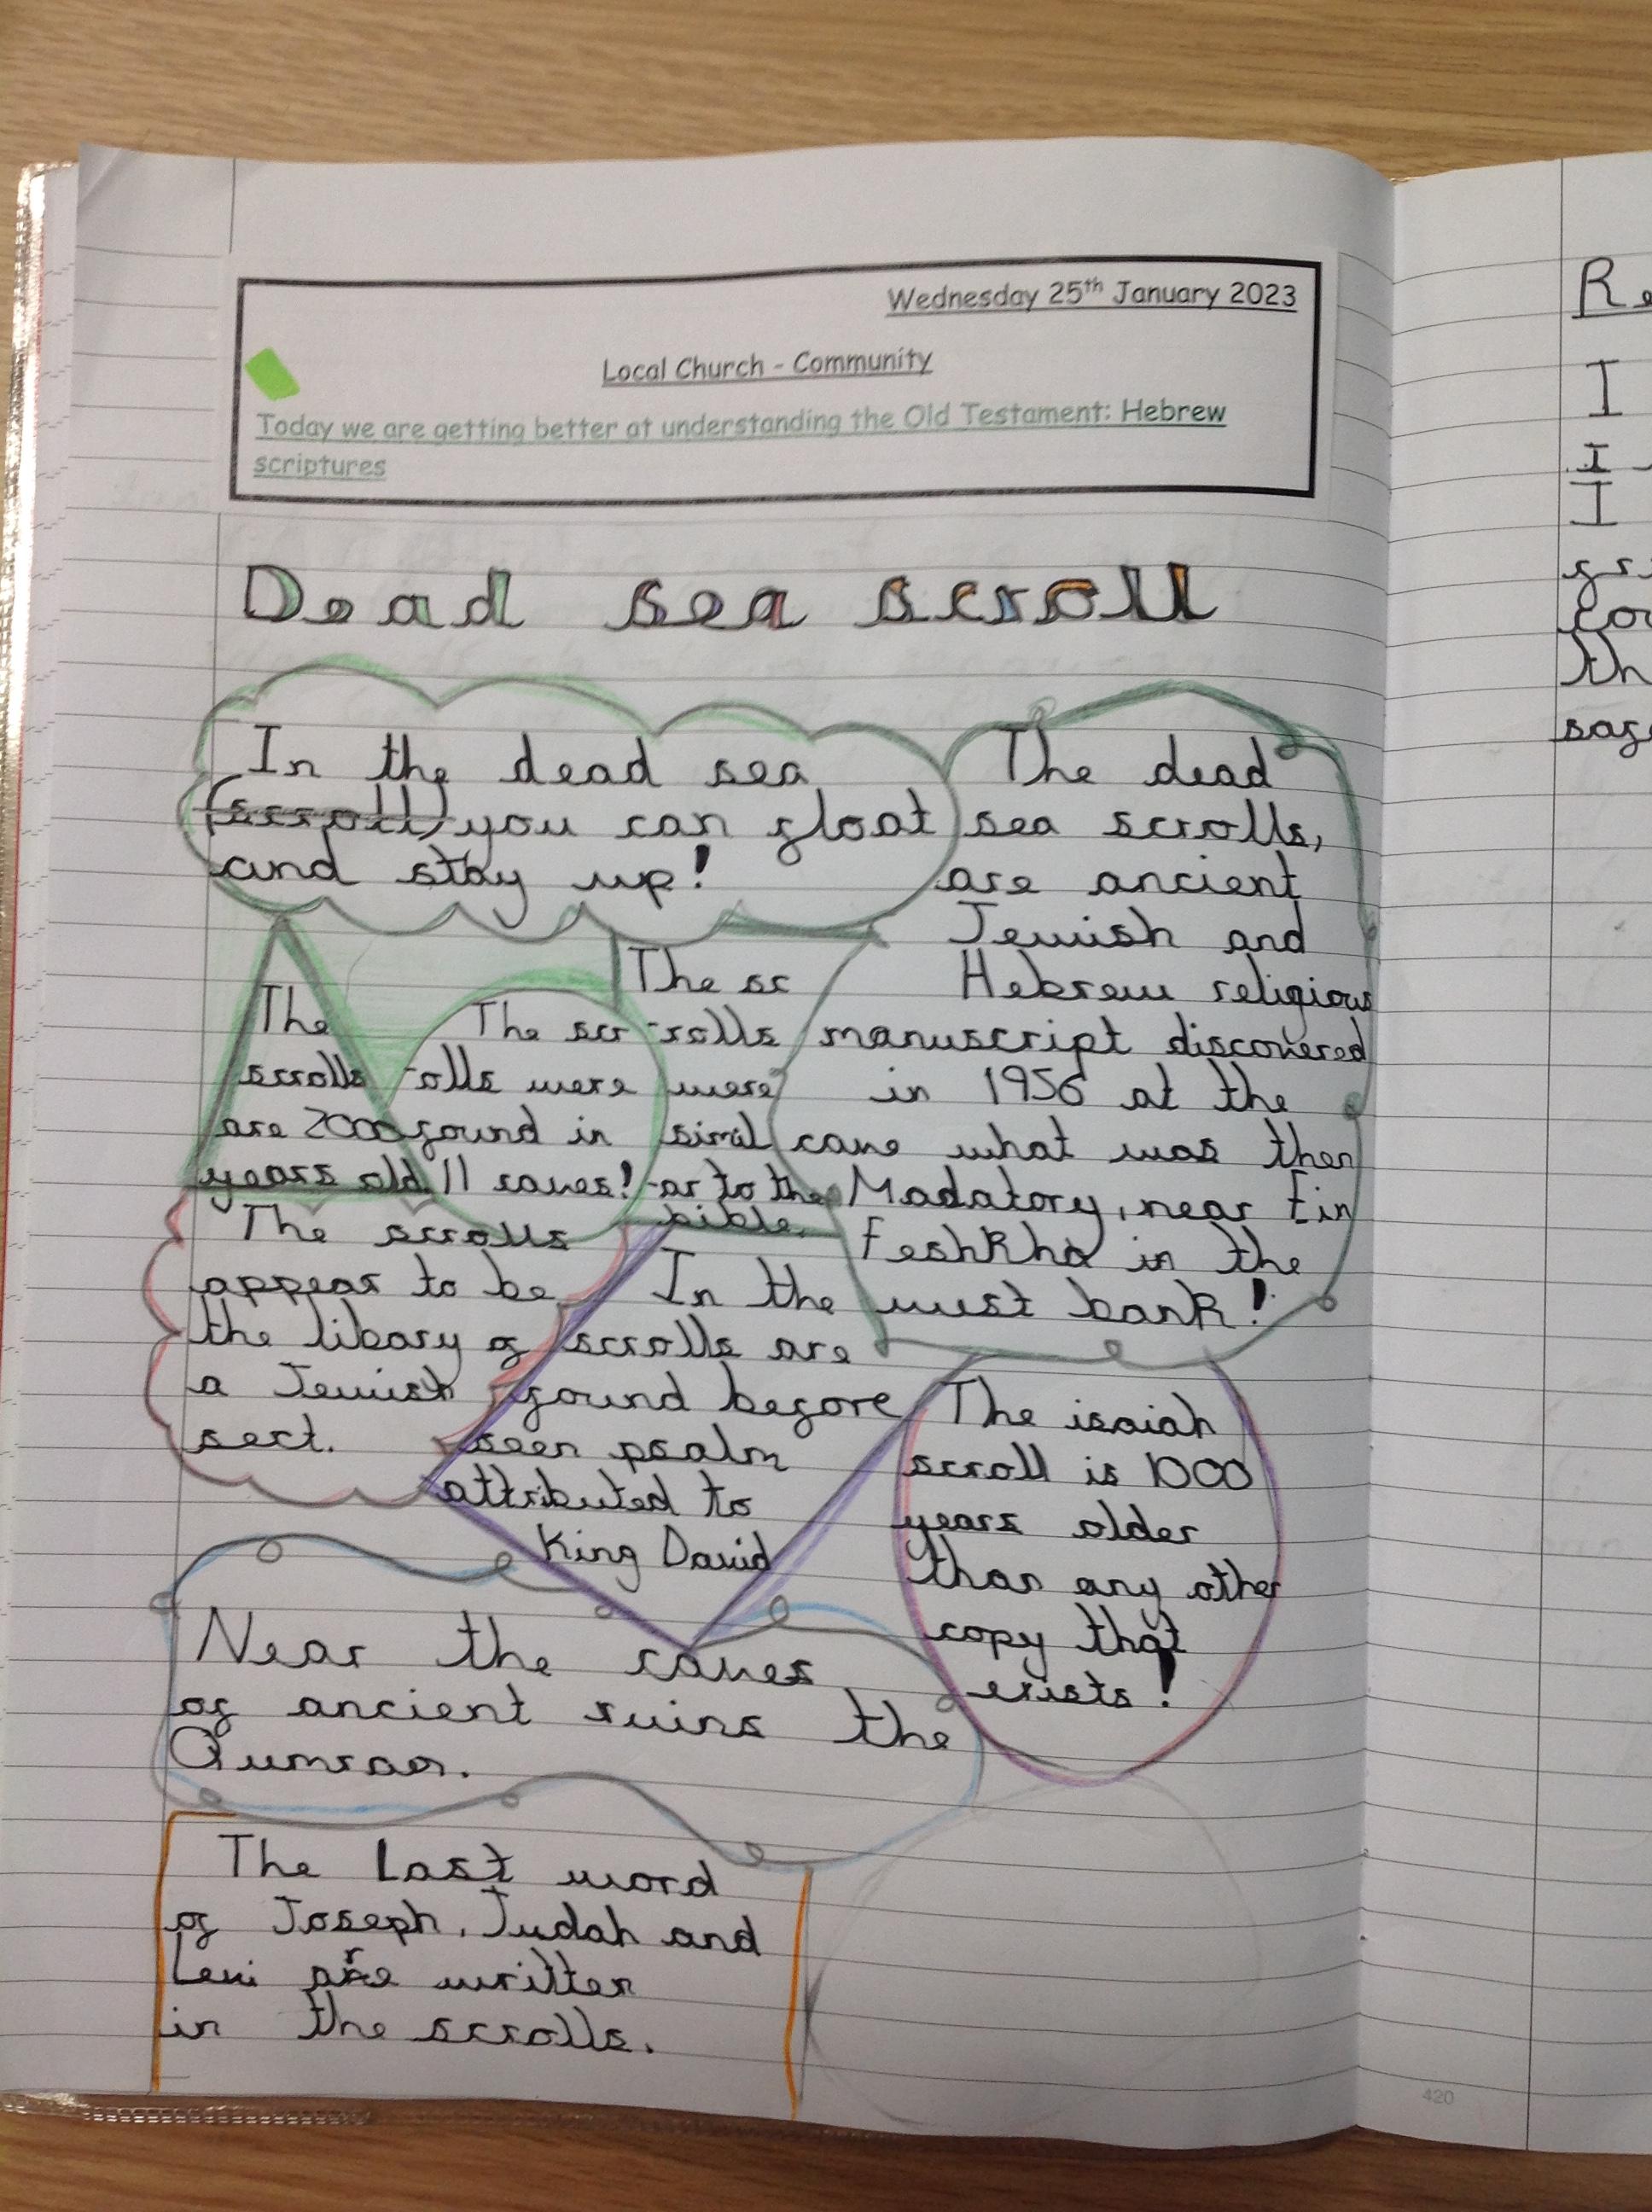 Wednesday 25th January 2023
Local Church - Community
Today we are getting better at understanding the Old Testament: Hebrew
scriptures
Dead sea scroll
In the dead sea
(scroll) you can float
and stay up!
The dead
sea scrolls,
are ancient
Jewish and
Hebrew religious
manuscript discovered
in 1956 at the
cave what was then
Madatory, near Ein
Feshkha in the
wust bank!
The
scrolls
are 2000
years old.
The scr
-olls were
found in
11 caves!
The sc
-rolls
were
simil
-ar to the
bible.
The scrolls
appear to be
the libary of
a Jewish
sect.
In the
scrolls are
found before
seen psalm
attributed to
King David
The isaiah
scroll is 1000
years older
than any other
copy that
exists!
Near the caves
of ancient ruins the
Qumran.
The Last word
of Joseph, Judah and
Levi are written
in the scrolls.
Re
I
I
I
fr
co
th
saf
420